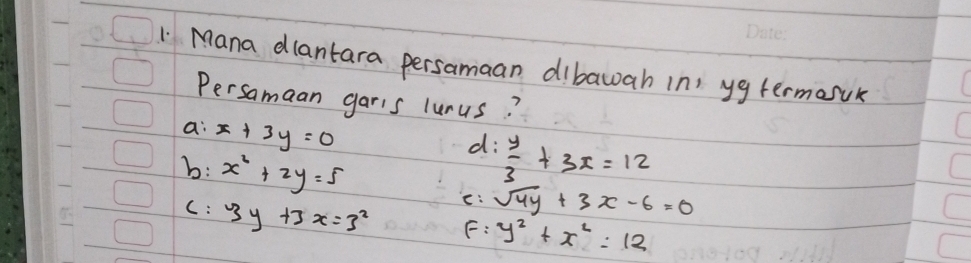 Date:
1. Mana diantara persamaan dibawah ini yg termasuk
Persamaan garis lurus ?
a: x + 3y = 0
b: x² + 2y = 5
c: 3y + 3x = 3²
d: y/3 + 3x = 12
e: √4y + 3x - 6 = 0
F: y² + x² = 12